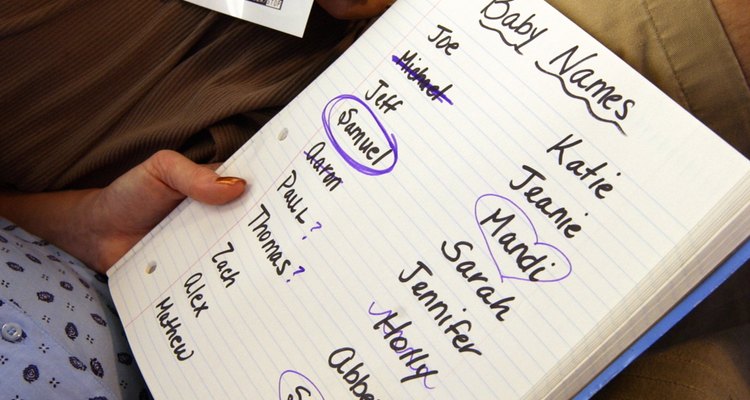 Baby Names
Joe
Michael
Jeff
Samuel
Aaron
Paul?
Thomas?
Zach
Alex
Mathew
Katie
Jeanie
Mandi
Sarah
Jennifer
Holly